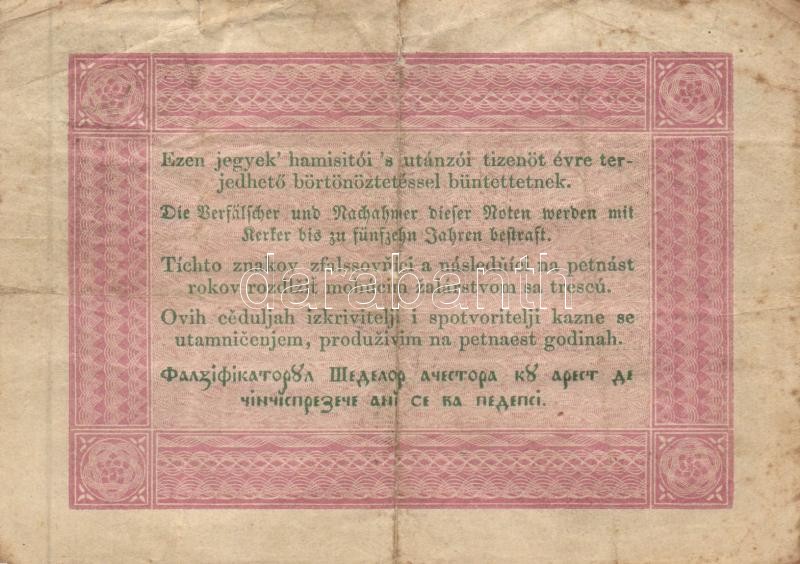 Ezen jegyek' hamisitói 's utánzói tizenöt évre ter-
jedhető börtönöztetéssel büntettetnek.
Die Verfälscher und Nachahmer dieser Noten werden mit
Kerker bis zu fünfzehn Jahren bestraft.
Tíchto znakov zfalssovňíci a následňíci na petnást
rokov rozďižiť mohúcim žalárstvom sa trescú.
darabanth
Ovih cěduljah izkrivitelji i spotvoritelji kazne se
utamničenjem, produživim na petnaest godinah.
Фалꙁіфікаторꙋл Шеделор ачестора кꙋ арест де
чінчіспреꙁече ані се ва педепсі.